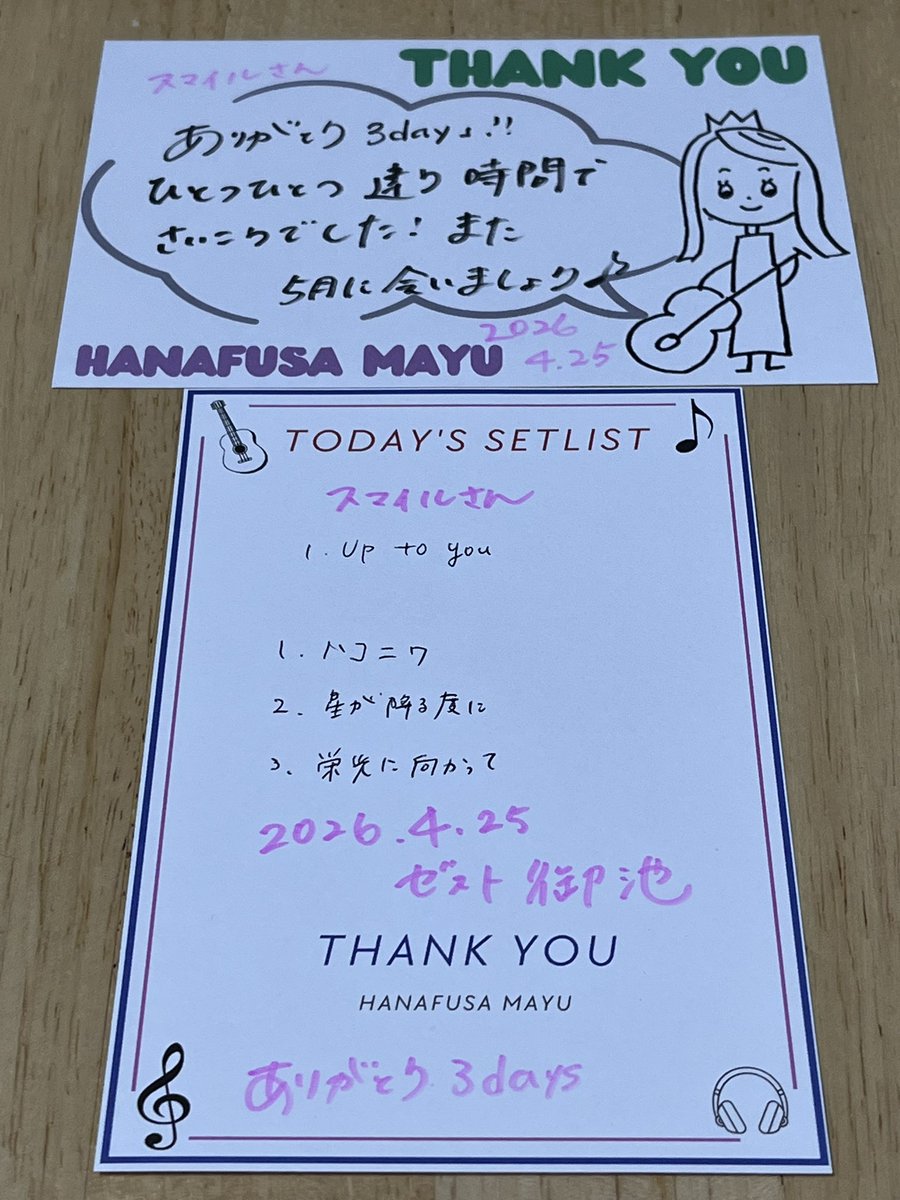 スマイルさん
THANK YOU
ありがとう 3days!!
ひとつひとつ 違う 時間で
さいこうでした! また
5月に会いましょう♪
HANAFUSA MAYU
2026
4.25
TODAY'S SETLIST
スマイルさん
1. Up to you
1. ハコニワ
2. 星が降る度に
3. 栄光に向かって
2026.4.25
ゼスト御池
THANK YOU
HANAFUSA MAYU
ありがとう 3days